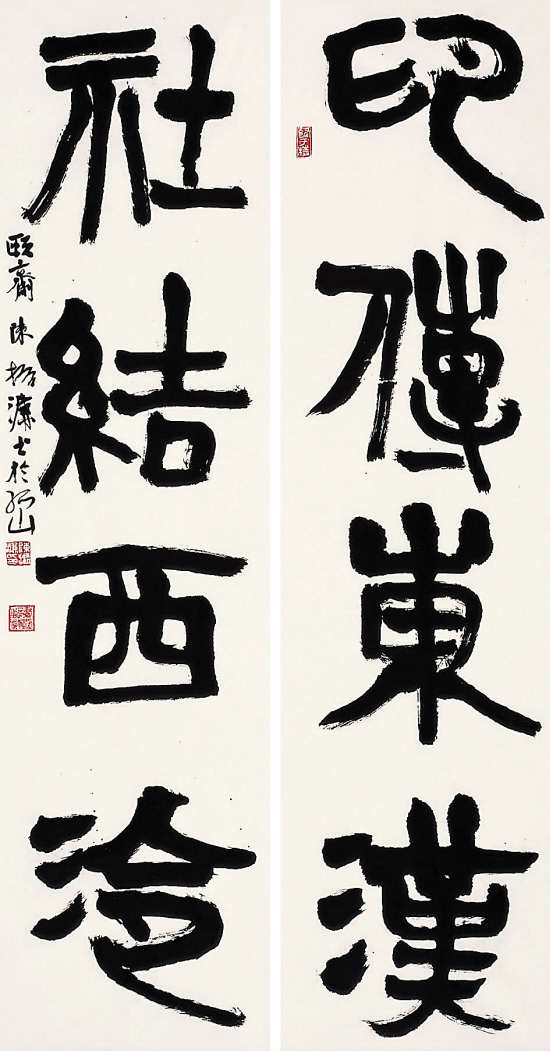 印傳東漢
社結西泠
頤齋陳振濂書於孤山